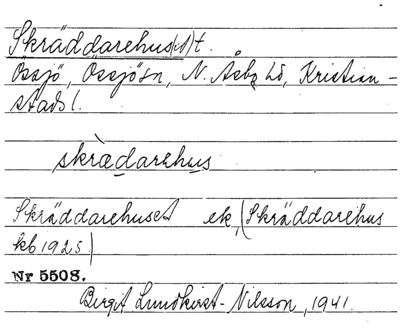 Skräddarehus(et) t.
Össjö, Össjö sn, N. Åsbo hd, Kristian-
stads l.
skrædarehus
Skräddarehuset ek, (Skräddarehus
kb 1925)
Nr 5508.
Birgit Lundkvist-Nilsson, 1941.